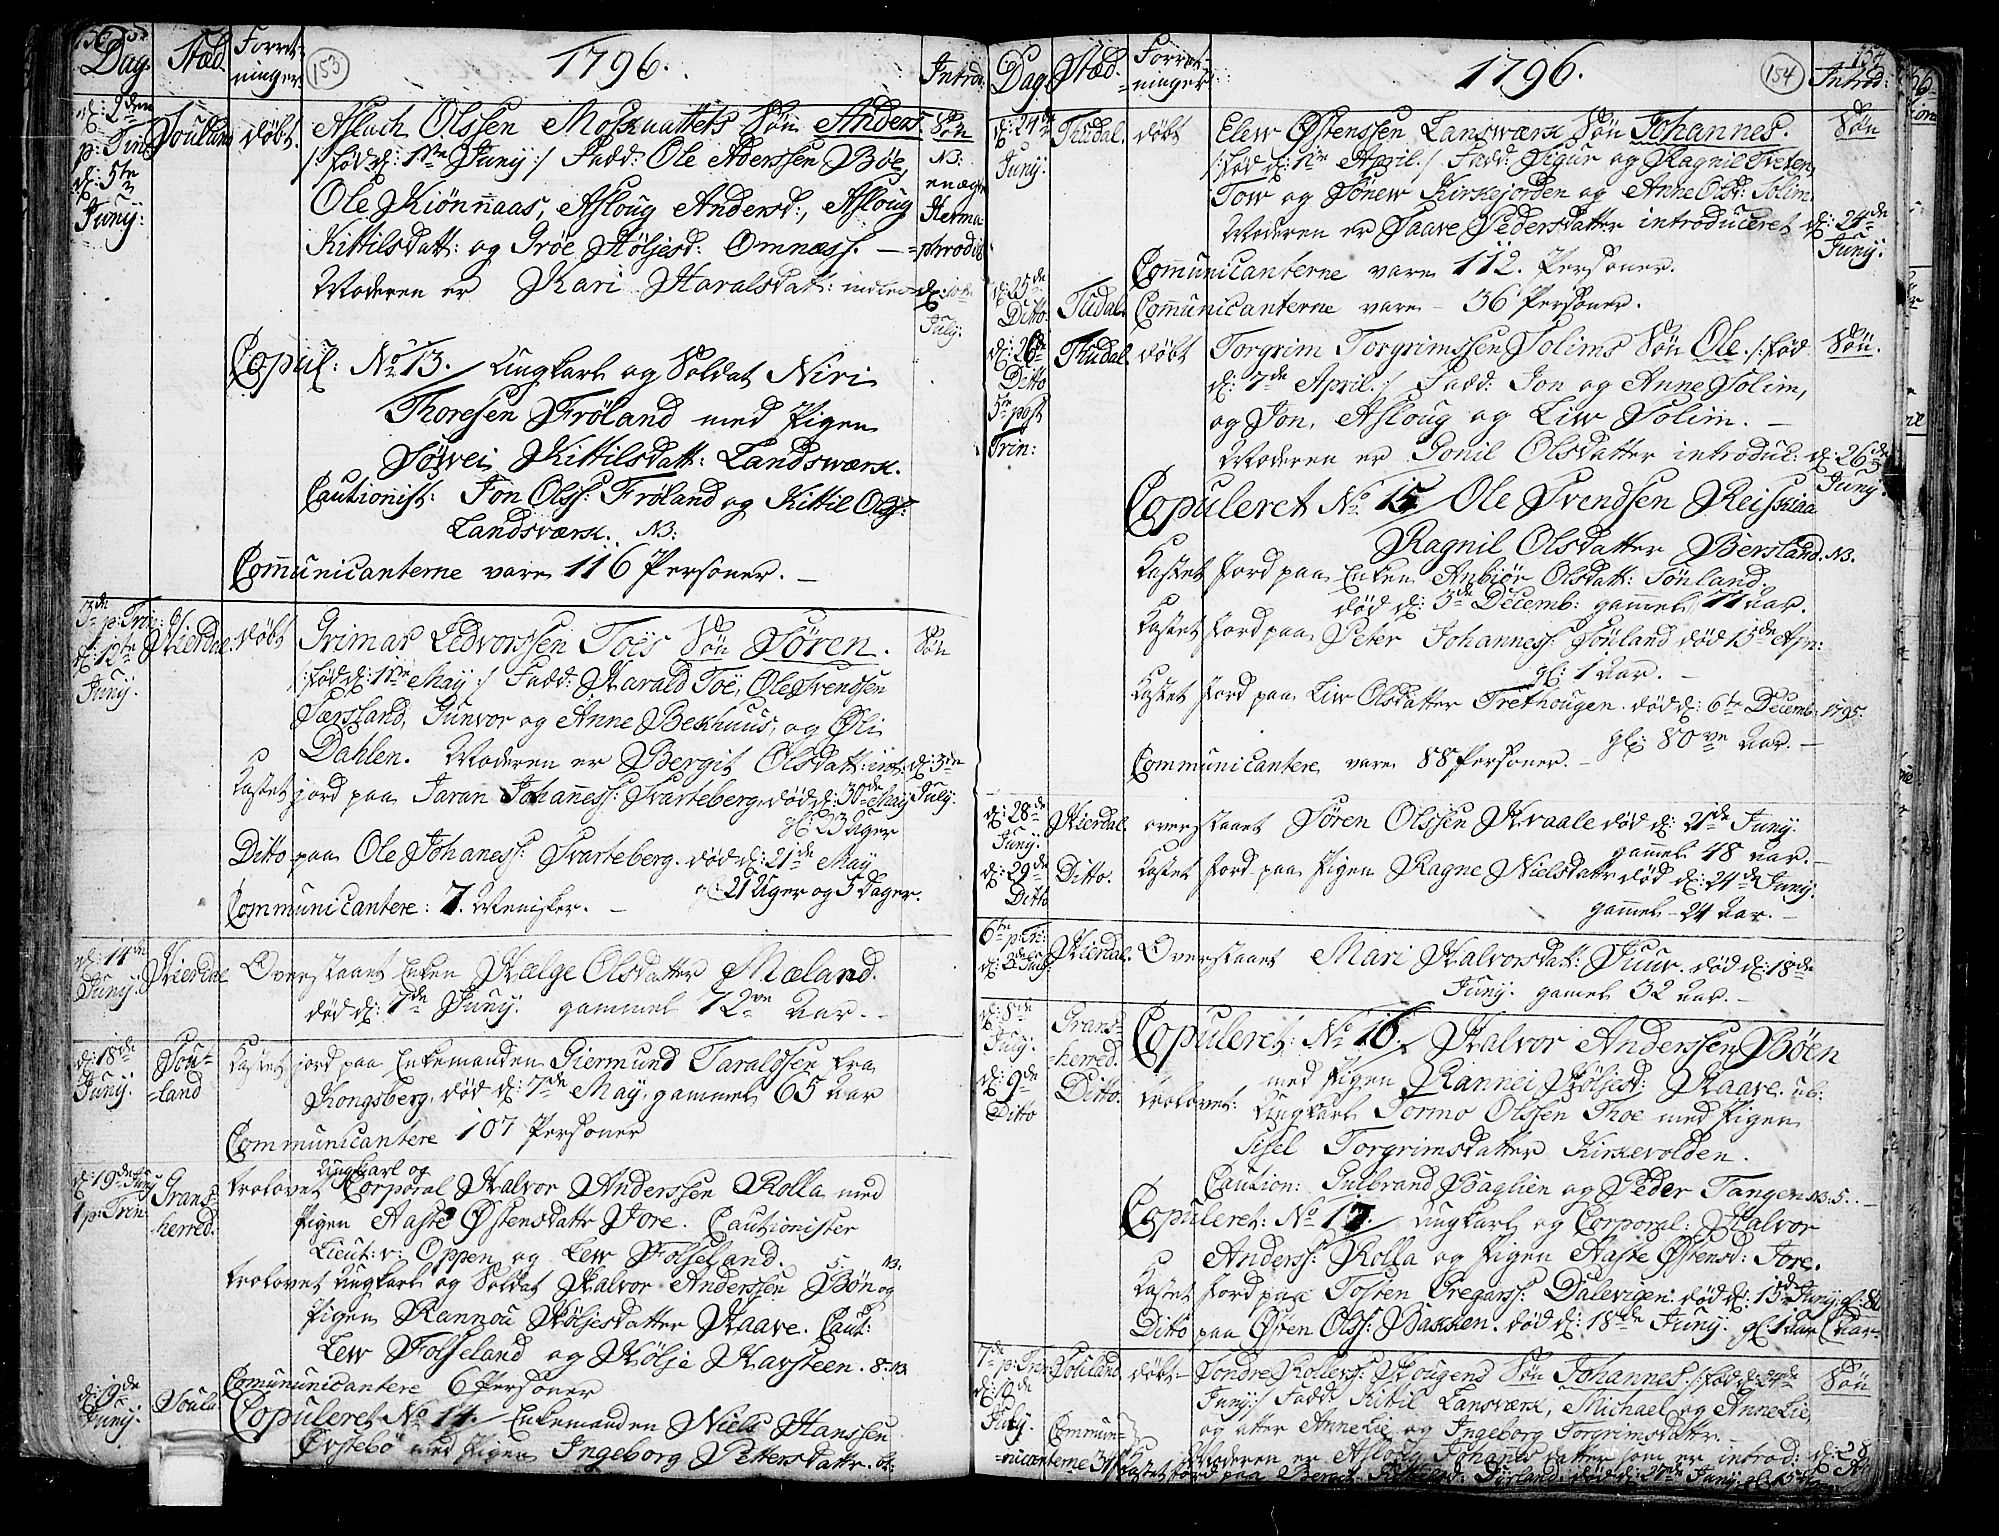 153
Dag. Stæd. Forret-
ninger.
1796.
Introd:
d: 2den
p: Trin
d: 5te
Junij:
Souland døbt. Aslach Olssen Moskuattets Søn Anders. Søn
/: fød d: 1ste Junij :/ Fadd: Ole Aderssen Bøe, NB:
Ole Kiönnaas, Asloug Andersd:, Asloug
en ægte Herma-
Kittilsdatt: og Gröe Kölsjesd: Omnæss. — =phrodit
Moderen er Kari Haralsdatt: d: 10de
July:
Copul: No 13./ Ungkarl og Soldat Niri
Thoresen Fröland med Pigen
Söwei Kittilsdatt: Landswærk.
Cautionist: Jon Olss: Frøland og Kittil Olss:
Landsværk. NB:
Communicanterne vare 116 Personer. —
3de p: Trin:
d: 12te
Junij.
Hierdal. døbt Grimar Ledvorssen Toës Søn Søren. Søn
/: fød d: 11te May :/ Fadd: Harald Toë, Ole Svendsen
Særsland, Gunvor og Anne Bekhuus, og Øli
Dahlen. Moderen er Bergit Olsdatt: int: d: 3de
July.
Kastet jord paa Taran Johaness: Svarteberg, død d: 30de May
gl: 23 Uger
Ditto paa Ole Johaness: Svarteberg. død d: 21de May
gl: 21 Uger og 5 Dager.
Communicantere: 7. Menisker. —
d: 14de
Junij.
Hierdal Overstaaet Enken Hælge Olsdatter Mæland.
død d: 7de Junij. gammel 72ve Aar. —
d: 18de
Junij.
Sou-
=land
Kastet jord paa Enkemanden Giermund Taraldsen fra
Kongsberg, død d: 7de May, gammel 65 Aar
Communicantere 107 Personer
d: 19de Junij
p: Trin:
Grans-
herred.
Ungkarl og
trolovet Corporal Halvor Anderssen Rolla med
Pigen Aaste Østensdattr Jore. Cautionister
Lieut: v: Oppen og Lew Folseland. 5. NB.
trolovet Ungkarl og Soldat Halvor Anderssen Bøn og
Pigen Rannou Kölsjesdatter Haave. Caut:
Lew Folseland og Kølsje Harsteen. 8. NB.
Comununicantere 6 Personer
d: 19de
Junij.
Soula
Copuleret No 14./ Enkemanden Niels Hanssen
Örstebö med Pigen Ingeborg Pettersdattr.
154
Dag Stæd. Forret-
ninger
1796.
Introd:
d: 24de
Junij.
Thudal. døbt Elew Østenssen Landswærk Søn Johannes. Søn
/: fød d: 1ste April. :/ Fadd: Sigur og Ragnil Treten,
Tow og Sönew Kirkejorden og Anne Olsd: Solim.
Moderen er Saave Pedersdatter introduceret d: 24de
Junij:
Communicanterne vare 112. Personer.
d: 25de
Ditto
Tudal. Communicanterne vare — 36 Personer.
d: 26de
Ditto
5te post
Trin:
Thudal døbt Torgrim Torgrimssen Solims Søn Ole. /: fød Søn.
d: 7de April :/ Fadd: Jon og Anne Solim,
og Jon, Asloug og Liw Solim. —
Moderen er Gonil Olsdatter introdul: d: 26de
Junij
Copuleret No 15/ Ole Svendsen Reiskiaa
Ragnil Olsdatter Bersland. NB.
Kastet Jord paa Enken Anbiör Olsdatt: Sönland.
død d: 3de Decemb: gammel 77 aar.
Kastet Jord paa Peter Johanness: Sønland død 15de Apr:
gl: 1 Aar. —
Kastet Jord paa Liw Olsdatter Trethougen. død d: 6te Decemb: 1795.
gl: 80ve Aar. —
Communicantere vare 88 Personer. —
d: 28de
Junij.
Hierdal. overstaaet Søren Olssen Kvaale død d: 21de Junij.
gammel 48 aar. —
d: 29de
Ditto
Ditto. Kastet Jord paa Pigen Ragne Nielsdattr død d: 24de Junij.
gammel 24 Aar. —
6te p: Tr:
Hierdal. Overstaaet Mari Halvorsdatt: Juuv. død d: 18de
Junij. gamel 32 aar. —
d: 8de
July.
Grans-
herred.
Copuleret: No 16./ Halvor Anderssen Bøen
med Pigen Rannei Kölsjesd: Haave.
d: 9de
Ditto
Ditto. trolovet: Ungkarl Tormo Olssen Thoe med Pigen
Sisel Torgrimsdatter Kirkevolden.
Caution: Gulbrand Baglien og Peder Tangen NB. 5. —
Copuleret: No 17./ Ungkarl og Corporal: Halvor
Anderss: Rolla og Pigen Aaste Östensd: Jore.
Kastet Jord paa Tosten Gregarss: Dalevigen. død d: 15de Junij gl: 80
Ditto paa Östen Olss: Bakken. død d: 18de Junij. gl: 1 Aar
7de p: Trin
d: 10de
July.
Souland. døbt — Sondre Rollerss: Hougens Søn Johannes. /: fød d: 24de Søn
Junij :/ Fadd: Kittil Lansværk, Michael og Anne Lie,
og atter Anne Lie og Ingeborg Torgrimsdatter.
Commun-
nicanterne 34
Moderen er Aslaug Johannes datter som er introd: d: 28
Kastet Jord paa Bergit død d: 27de Junij gl: 15